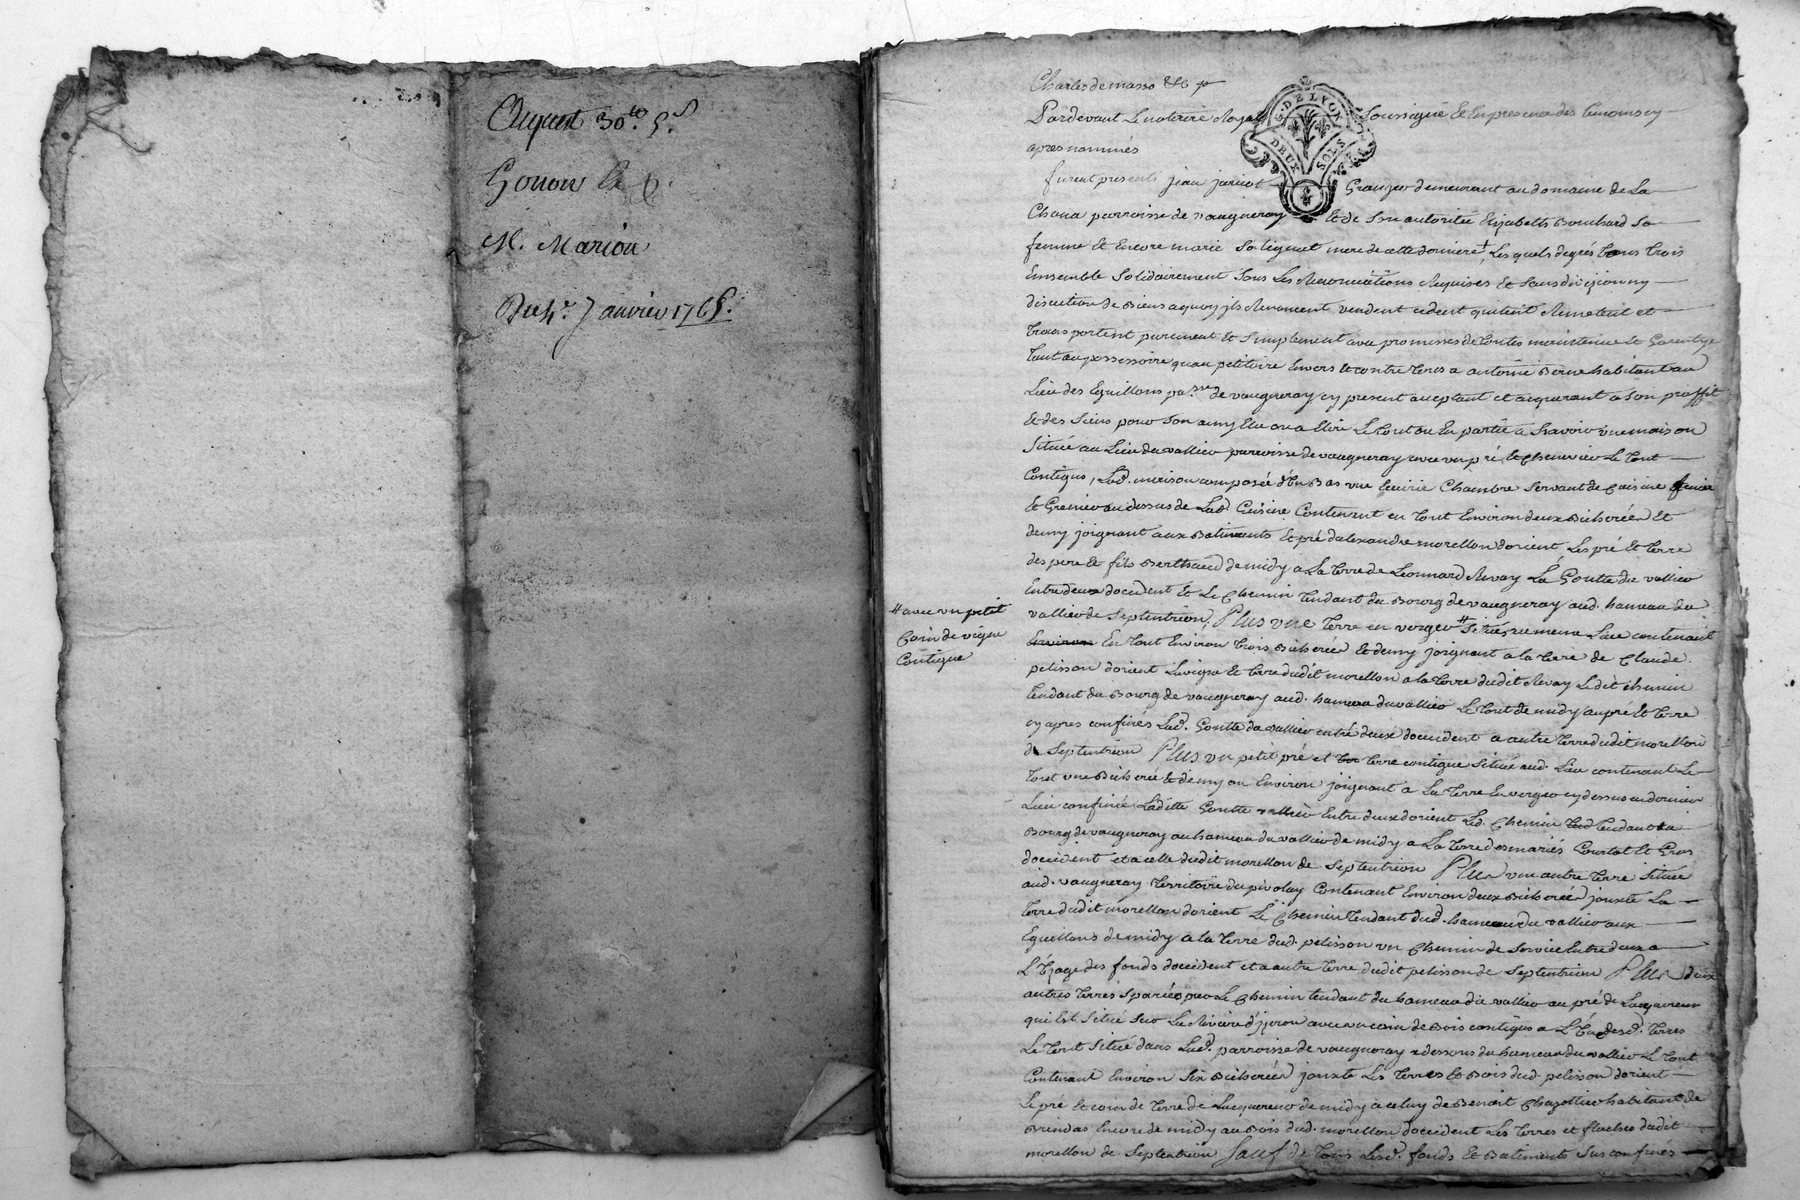 Acquest 30 lt 5 s
Gonon
M. Marion
Du 4e. Janvier 1765.
Charles de masso &c
Pardevant Le notaire Royal Soussigné Et En presence des temoins cy
apres nommés
furent presents jean jaricot Granger demeurant au domaine de La
Chana parroisse de vaugneray Et de Son autorité Elizabeth Bouchard Sa
femme Et Encore marie Solignat mere de cette derniere, Les quels degrés tous trois
Ensemble Solidairement Sous Les Renonciations Requises Et Sans division ny
discution de Biens a quoy ils Renoncent, vendent cedent quittent Remettent et
transportent purement Et Simplement avec promesses de toutes maintenue Et Garentye
tant au possessoire quau petitoire Envers Et contre tous a antoine Berne habitant au
Lieu des Eguillons pa.sse de vaugneray cy present acceptant et acquerant a Son proffit
Et des Siens pour Son amy Elu ou a Elire Le tout ou En partie a Scavoir vne maison
Située au Lieu du vallier parroisse de vaugneray avec un pré, Et Chenevier Le tout
Contigus, Lad. maison composée d'En Bas vne Ecurie Chambre Servant de Cuisine fenier
Et Grenier au dessus de Lad. Cuisine Contenant en tout Environ deux Bicherées Et
demy joignant aux Batiments Et pré dalexandre morellon dorient, Les pré Et terre
des pere Et fils Berthaud de midy a La terre de Leonnard Revay La Goutte du vallier
Entre deux doccident Et Le Chemin tendant du Bourg de vaugneray aud. hameau du
vallier de Septentrion, Plus vne terre en verger # Sitüés au meme Lieu contenant
# avec vn petit
Coin de vigne
Contigue
En tout Environ trois Bicherées Et demy joignant a la terre de Claude
pelisson dorient La vigne Et terre dudit morellon a la terre dudit Revay Ledit chemin
tendant du Bourg de vaugneray aud. hameau du vallier Le tout de midy au pré Et terre
cy apres confinés Lad. Goutte du vallier entre deux doccident a autre terre dudit morellon
de Septentrion Plus vn petit pré et terre contigue Située aud. Lieu contenant Le
tout vne Bicherée Et demy ou Environ joignant a La terre En verger cy dessus en dernier
Lieu confinée Ladite Goutte vallier Entre deux dorient Led. Chemin tendant du
Bourg de vaugneray au hameau du vallier de midy a La terre des mariés Courtat Et Gros
doccident et a celle dudit morellon de Septentrion Plus vne autre terre Située
aud. vaugneray territoire du pivolay Contenant Environ deux Bicherées jouxte La
terre dudit morellon dorient Le Chemin tendant dud. hameau du vallier aux
Eguellons de midy a la terre dud. pelisson vn chemin de Service Entre deux a
L'Usage des fonds doccident et a autre terre dudit pelisson de Septentrion Plus deux
autres terres Sparées par Le Chemin tendant du hameau du vallier au pré de Lacquereur
qui Est Situé Sur La Riviere d'yzeron avec vn coin de Bois contigus a L'Une desd. terres
Le tout Situé dans Lad. parroisse de vaugneray au dessous du hameau du vallier Le tout
Contenant Environ Six Bicherées jouxte Les terres Et Bois dud. pelisson dorient
Le pré Et coin de terre de Lacquereur de midy a celuy de Benoit Chazottier habitant de
Brindas Encore de midy au Bois dud. morellon doccident Les terres et dudit
morellon de Septentrion Sauf de tous Lesd. fonds Et Batiments Sus confinés